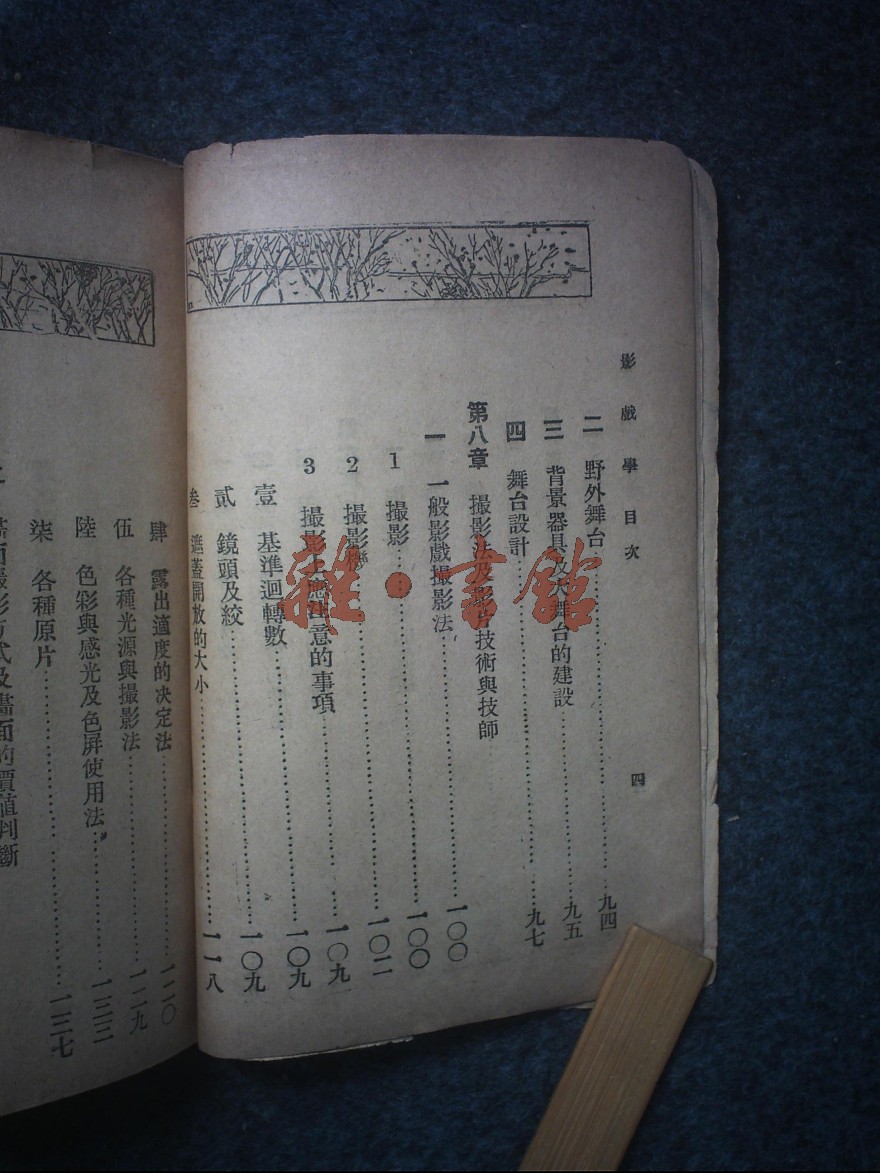 影戲學目次 四
二 野外舞台……九四
三 背景器具及大舞台的建設……九五
四 舞台設計……九七
第八章 撮影法及影片技術與技師
一 一般影戲撮影法……一〇〇
1 撮影……一〇〇
2 撮影機……一〇二
3 撮影上應注意的事項……一〇九
壹 基準迴轉數……一〇九
貳 鏡頭及絞……一〇九
叁 遮蓋開放的大小……一一八
肆 露出適度的决定法……一二〇
伍 各種光源與撮影法……一二九
陸 色彩與感光及色屏使用法……一三三
柒 各種原片……一三七
畫面撮影方式及畫面的價值判斷
雜·書館